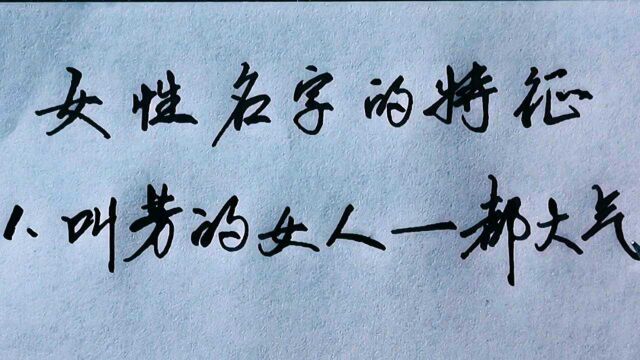 女性名字的特征
1、叫芳的女人一都大气